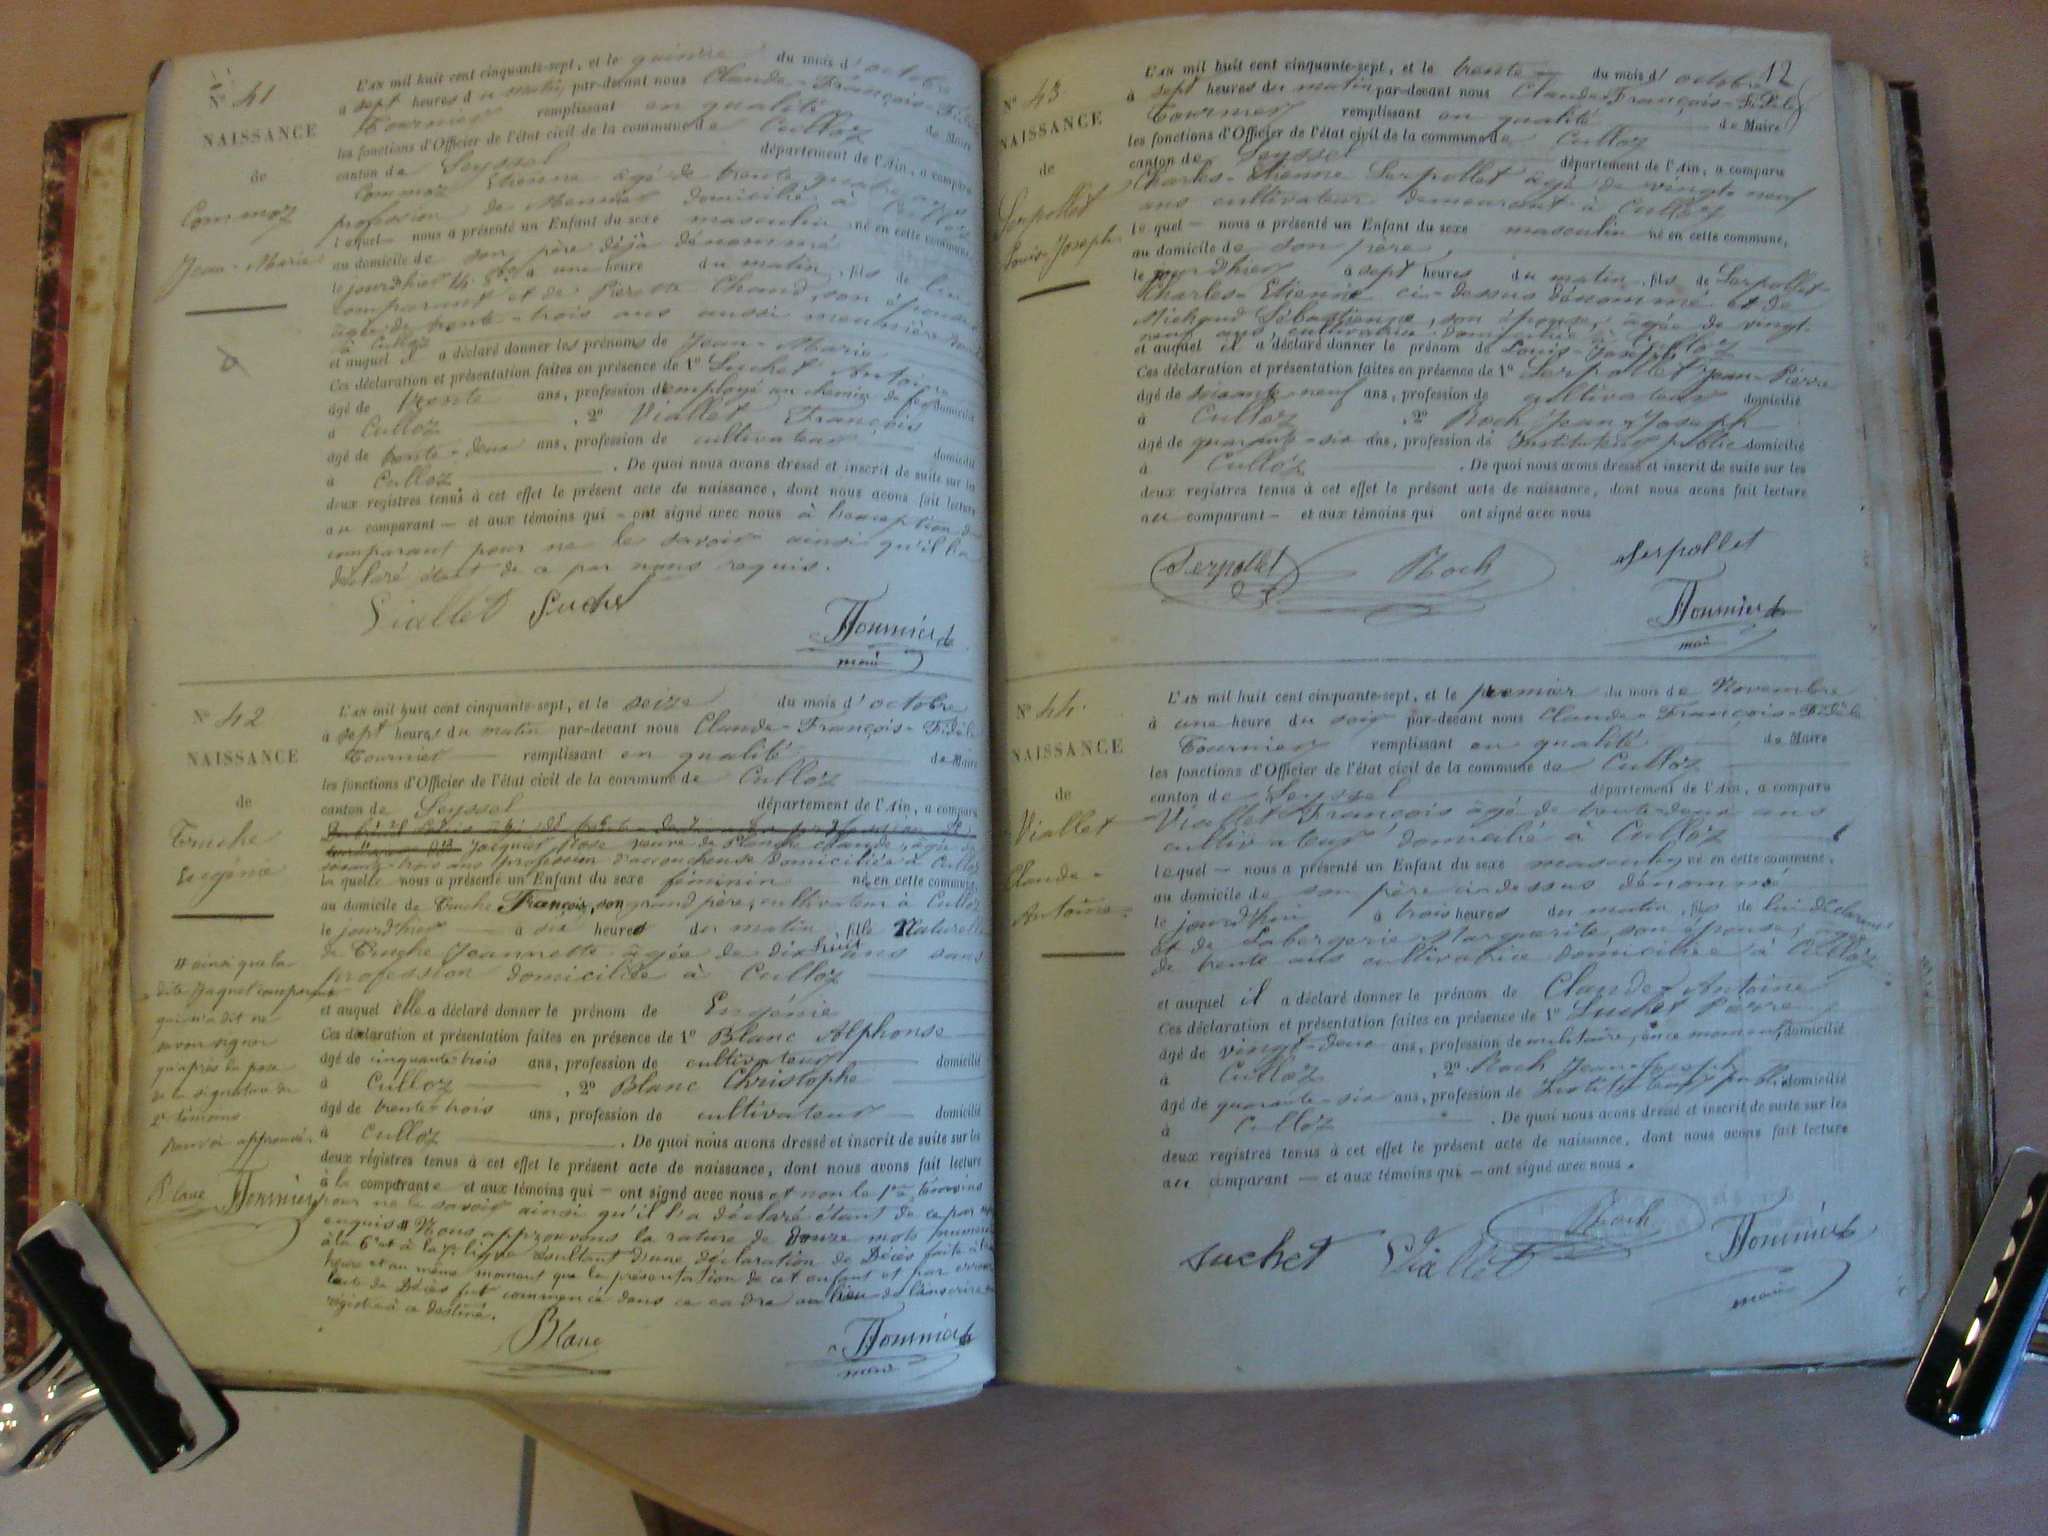 N° 41
NAISSANCE
de
Commoz
Jean-Marie
L'AN mil huit cent cinquante-sept, et le quinze du mois d'octobre
à sept heures du matin par-devant nous Claude-François-Fidèle
Tournier remplissant en qualité de Maire
les fonctions d'Officier de l'état civil de la commune de Culloz
canton de Seyssel département de l'Ain, a comparu
Commoz Etienne âgé de trente quatre ans
profession de Meunier domicilié à Culloz
lequel — nous a présenté un Enfant du sexe masculin né en cette commune,
au domicile de son père déjà dénommé
le jourd'hier à une heure du matin, fils de lui
comparant et de Pierrette Chand, son épouse
âgée de trente-trois ans aussi meunière
à Culloz
et auquel il a déclaré donner les prénoms de Jean-Marie
Ces déclaration et présentation faites en présence de 1° Suchet Antoine
âgé de trente ans, profession d'employé au chemin de fer domicilié
à Culloz , 2° Viallet François
âgé de trente-deux ans, profession de cultivateur domicilié
à Culloz . De quoi nous avons dressé et inscrit de suite sur les
deux registres tenus à cet effet le présent acte de naissance, dont nous avons fait lecture
au comparant — et aux témoins qui — ont signé avec nous à l'exception du
comparant pour ne le savoir ainsi qu'il l'a
déclaré étant de ce par nous requis.
Viallet Suchet
Tournier
maire
N° 42
NAISSANCE
de
Truche
Eugénie
L'AN mil huit cent cinquante-sept, et le seize du mois d'octobre
à sept heures du matin par-devant nous Claude-François-Fidèle
Tournier — remplissant en qualité de Maire
les fonctions d'Officier de l'état civil de la commune de Culloz
canton de Seyssel département de l'Ain, a comparu
Jacquet Rose veuve de Blanche Claude, âgée de
trois ans profession d'accoucheuse domiciliée à Culloz
la quelle nous a présenté un Enfant du sexe féminin né en cette commune,
au domicile de Truche François, son grand père, cultivateur à Culloz
le jourd'hier — à six heures du matin, fille Naturelle
de Truche Jeannette âgée de dix huit ans sans
profession domiciliée à Culloz
et auquel elle a déclaré donner le prénom de Eugénie
Ces déclaration et présentation faites en présence de 1° Blanc Alphonse
âgé de cinquante-trois ans, profession de cultivateur domicilié
à Culloz , 2° Blanc Christophe
âgé de trente-trois ans, profession de cultivateur domicilié
à Culloz . De quoi nous avons dressé et inscrit de suite sur les
deux régistres tenus à cet effet le présent acte de naissance, dont nous avons fait lecture
à la comparante et aux témoins qui — ont signé avec nous et non le 1er témoins
pour ne le savoir ainsi qu'il l'a déclaré étant de ce par nous
enquis # Nous approuvons la rature de douze mots
à la 6e et à la 7e ligne résultant d'une déclaration de Décès faite à la
heure et au même moment que la présentation de cet enfant et par erreur
l'acte de Décès fut commencé dans ce cadre au lieu de l'inscrire
régistre à ce destiné.
Blanc
Tournier
maire
# ainsi que la
dite Jaquet comparante
qui n'a dit ne
savoir signer
qu'après la pose
de la signature du
2e témoins
Renvoi approuvé.
Blanc Tournier
12
N° 43
NAISSANCE
de
Serpollet
Louis-Joseph
L'AN mil huit cent cinquante-sept, et le trente du mois d'octobre
à sept heures du matin par-devant nous Claude-François-Fidèle
Tournier remplissant en qualité de Maire
les fonctions d'Officier de l'état civil de la commune de Culloz
canton de Seyssel département de l'Ain, a comparu
Charles-Etienne Serpollet âgé de vingt-neuf
ans cultivateur demeurant à Culloz
lequel — nous a présenté un Enfant du sexe masculin né en cette commune,
au domicile de son père
le jourd'hier à sept heures du matin, fils de Serpollet
Charles-Etienne ci-dessus dénommé et de
Michaud Sébastienne, son épouse, âgée de vingt-
neuf ans, cultivatrice domiciliée à Culloz
et auquel il a déclaré donner le prénom de Louis-Joseph
Ces déclaration et présentation faites en présence de 1° Serpollet Jean-Pierre
âgé de soixante neuf ans, profession de cultivateur domicilié
à Culloz , 2° Roch Jean-Joseph
âgé de quarante-six ans, profession de Instituteur public domicilié
à Culloz . De quoi nous avons dressé et inscrit de suite sur les
deux registres tenus à cet effet le présent acte de naissance, dont nous avons fait lecture
au comparant — et aux témoins qui ont signé avec nous
Serpollet Roch Serpollet
Tournier
maire
N° 44.
NAISSANCE
de
Viallet
Claude-
Antoine.
L'AN mil huit cent cinquante-sept, et le premier du mois de Novembre
à une heure du soir par-devant nous Claude-François-Fidèle
Tournier remplissant en qualité de Maire
les fonctions d'Officier de l'état civil de la commune de Culloz
canton de Seyssel département de l'Ain, a comparu
Viallet François âgé de trente-deux ans
cultivateur domicilié à Culloz
lequel — nous a présenté un Enfant du sexe masculin né en cette commune,
au domicile de son père ci-dessus dénommé
le jourd'hui à trois heures du matin, fils de lui déclarant
et de Labergerie Marguerite, son épouse, âgée
de trente ans cultivatrice domiciliée à Culloz
et auquel il a déclaré donner le prénom de Claude-Antoine
Ces déclaration et présentation faites en présence de 1° Suchet Pierre
âgé de vingt-deux ans, profession de militaire, en ce moment, domicilié
à Culloz , 2° Roch Jean-Joseph
âgé de quarante-six ans, profession de Instituteur public domicilié
à Culloz . De quoi nous avons dressé et inscrit de suite sur les
deux registres tenus à cet effet le présent acte de naissance, dont nous avons fait lecture
au comparant — et aux témoins qui — ont signé avec nous.
Suchet Viallet Roch Tournier
maire